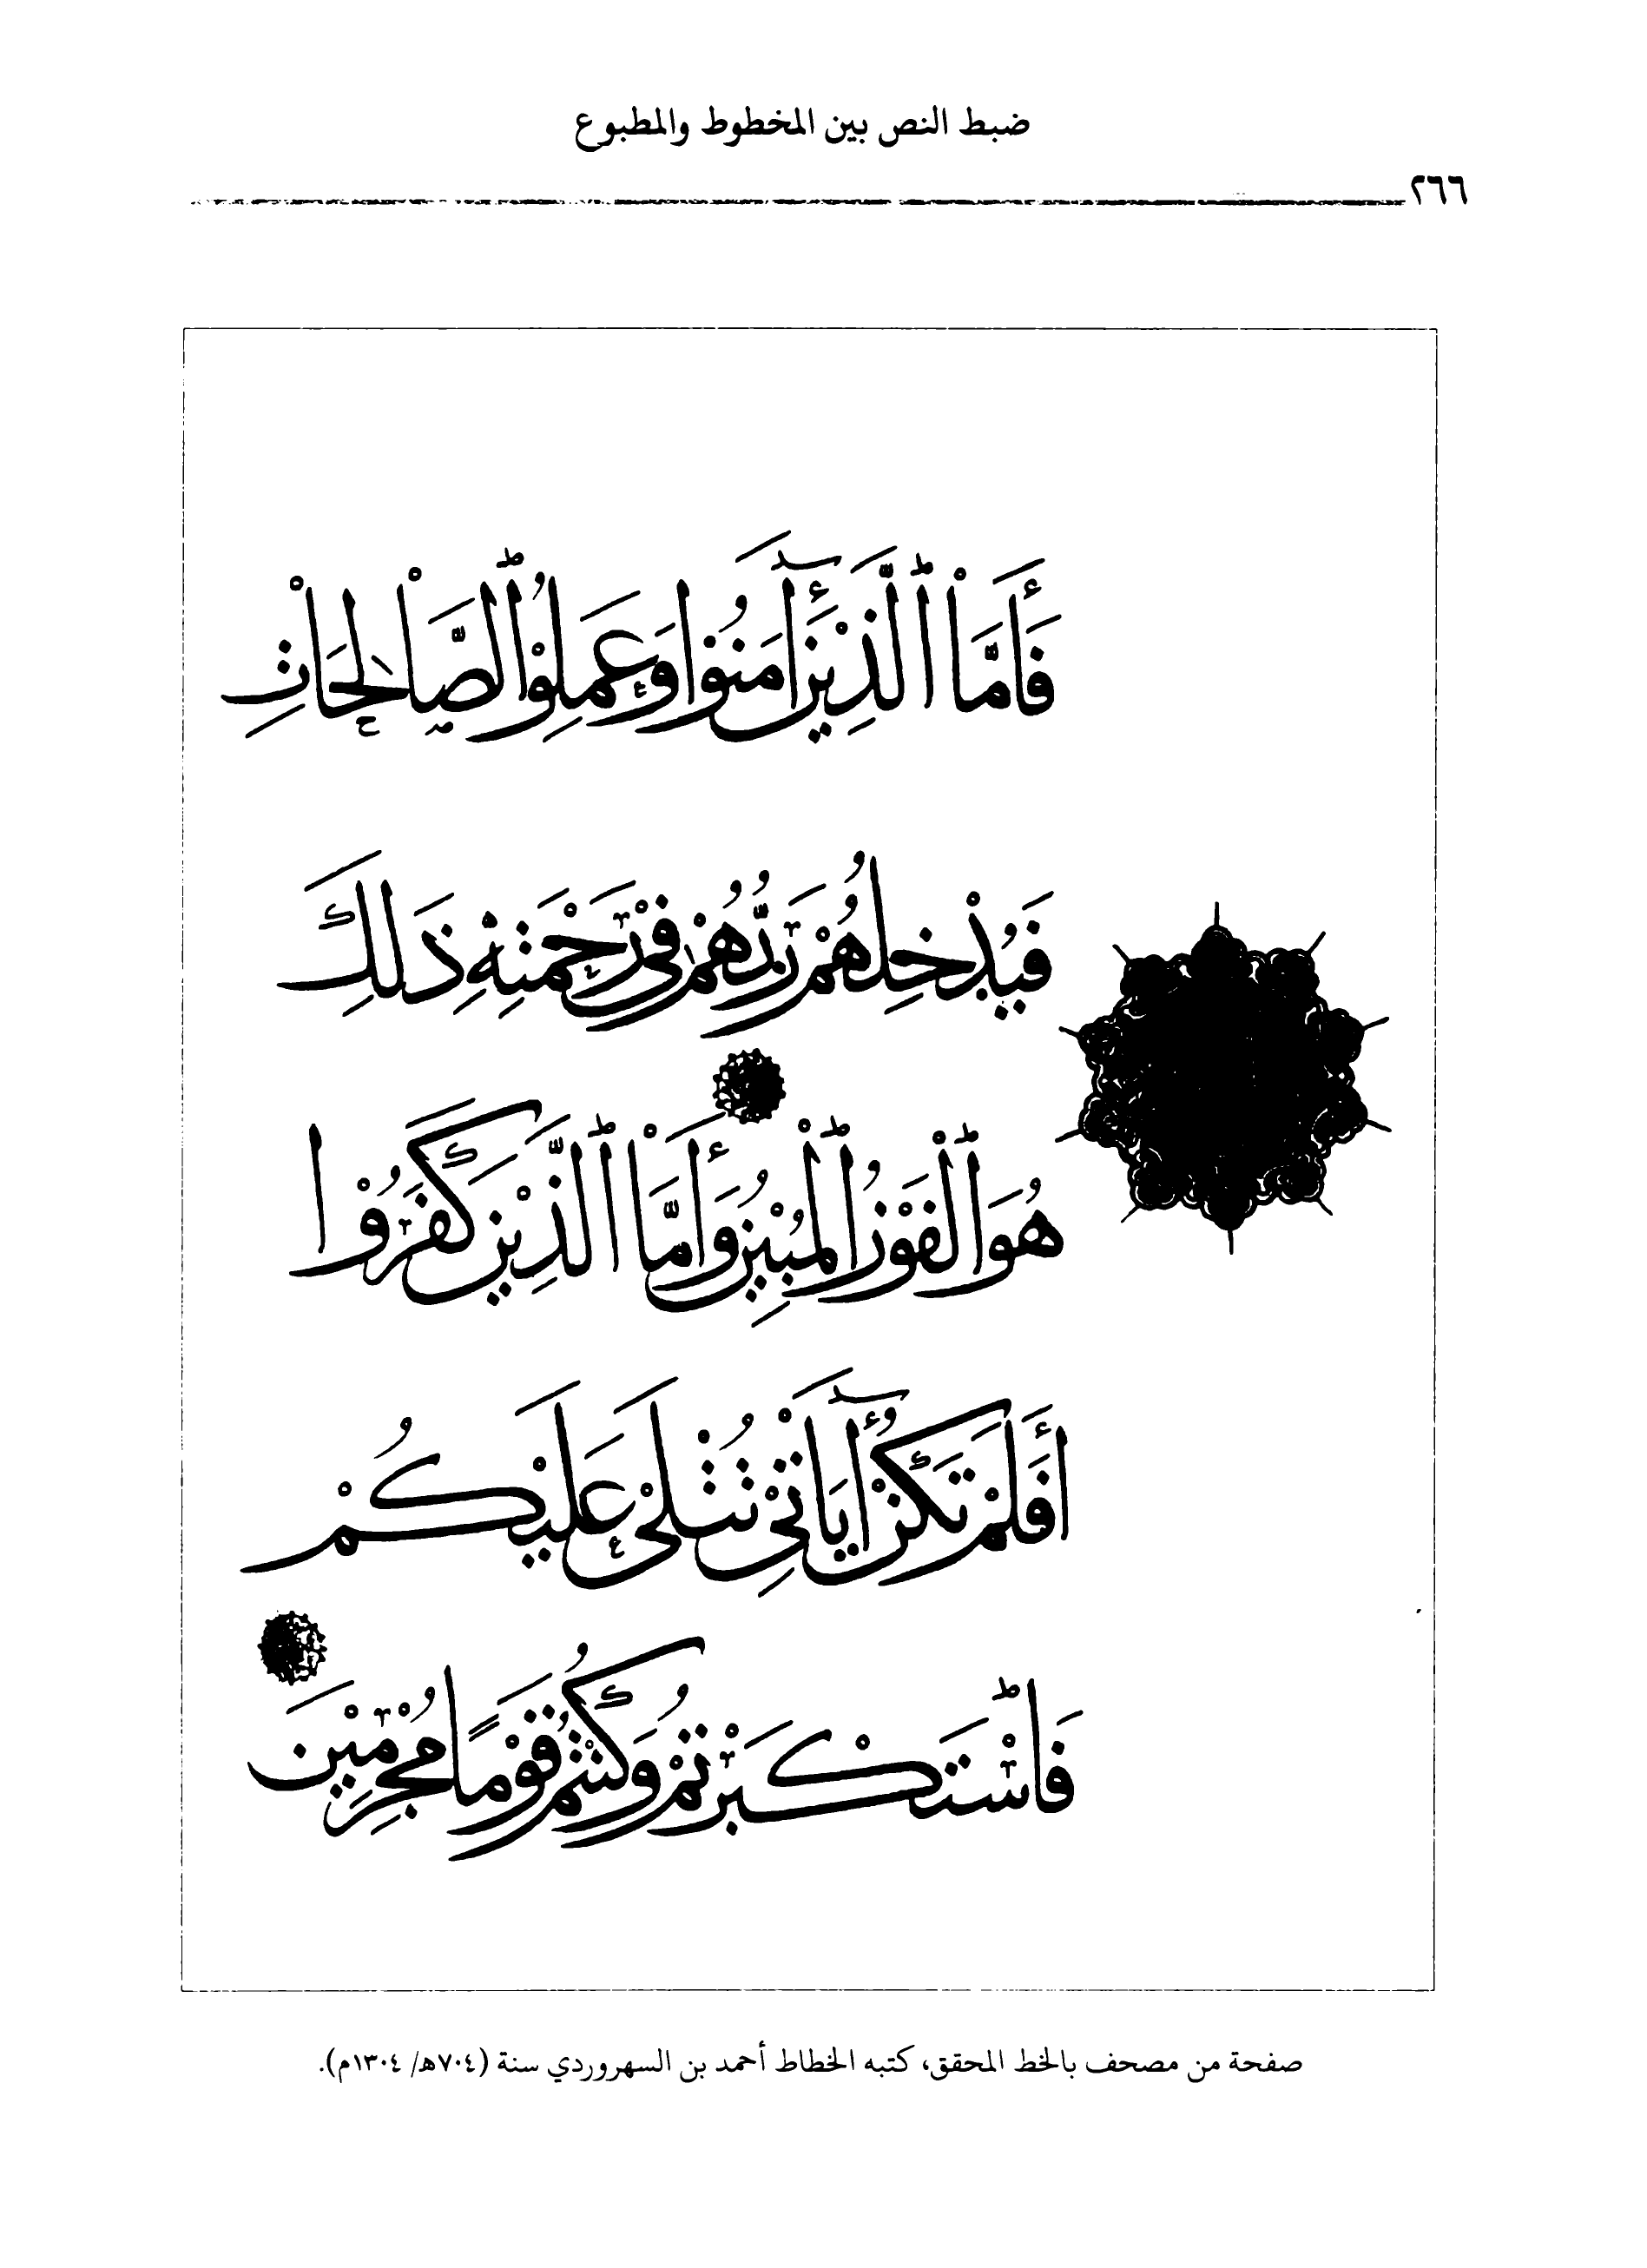 ضبط النص بين المخطوط والمطبوع
٢٦٦
فَأَمَّا ٱلَّذِيْنَ أٓمَنُوْا وَعَمِلُوْا ٱلصَّالِحَاتِ
فَيُدْخِلُهُمْ رَبُّهُمْ فِيْ رَحْمَتِهِ ذَلِكَ
هُوَ ٱلْفَوْزُ ٱلْمُبِيْنُ وَأَمَّا ٱلَّذِيْنَ كَفَرُوْا
أَفَلَمْ تَكُنْ أٓيَاتِيْ تُتْلَىْ عَلَيْكُمْ
فَٱسْتَكْبَرْتُمْ وَكُنْتُمْ قَوْمًا مُجْرِمِيْنَ
صفحة من مصحف بالخط المحقق، كتبه الخطاط أحمد بن السهروردي سنة (٧٠٤هـ/ ١٣٠٤م).